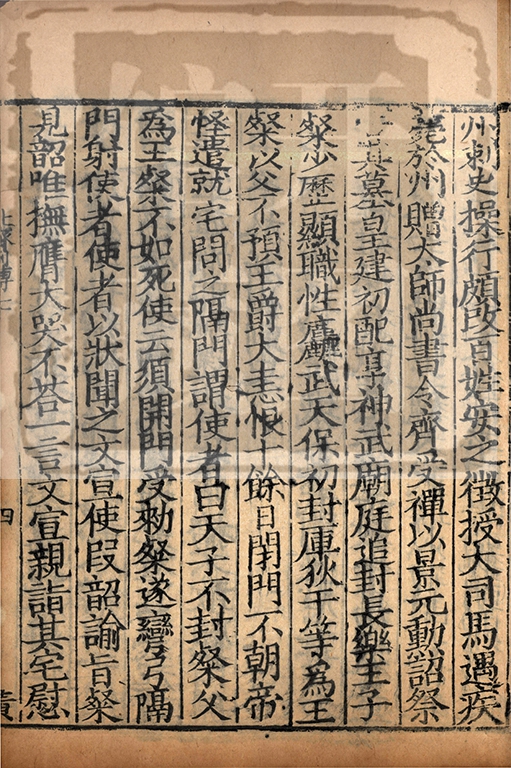 州刺史操行頗改百姓安之徵授大司馬遇疾
薨於州贈太師尚書令齊受禪以景元勳詔祭
其墓皇建初配享神武廟庭追封長樂王子
粲少歷顯職性麤武天保初封厙狄干等為王
粲以父不預王爵大恚恨十餘日閉門不朝帝
怪遣就宅問之隔門謂使者曰天子不封粲父
為王粲不如死使云須開門受勑粲遂彎弓隔
門射使者使者以狀聞之文宣使段韶諭旨粲
見韶唯撫膺大哭不荅一言文宣親詣其宅慰
四